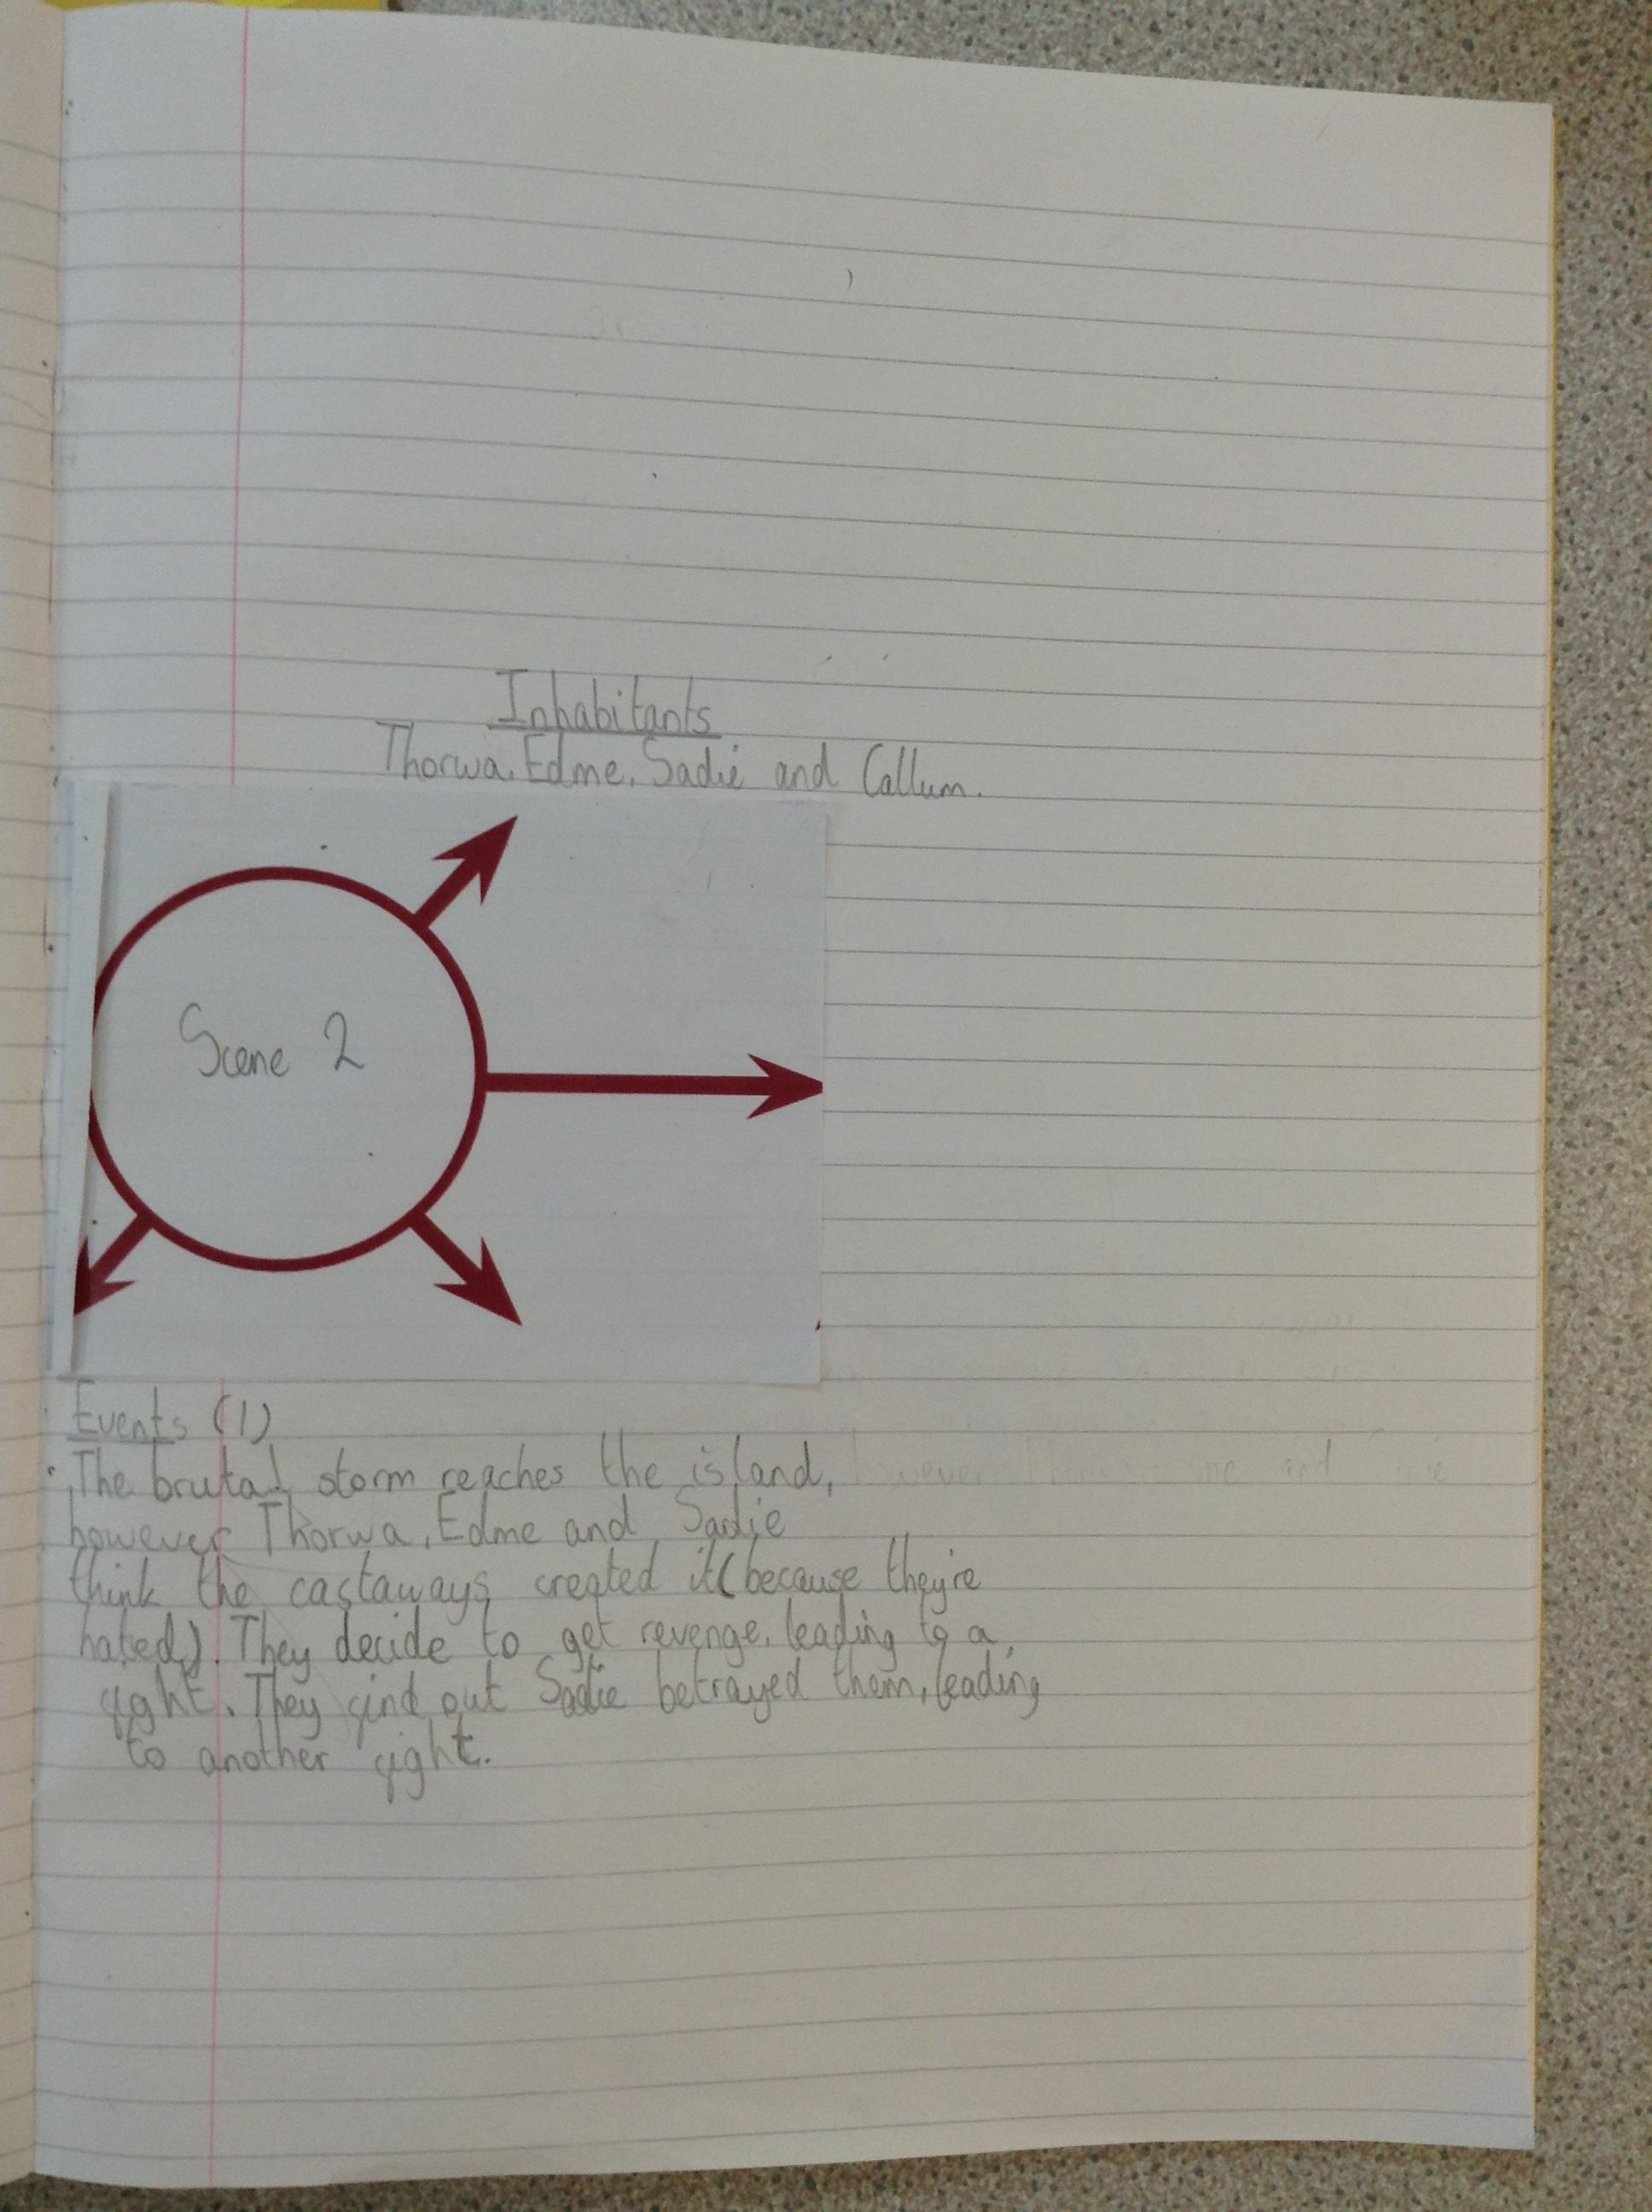 Inhabitants
Thorwa, Edme, Sadie and Callum.
Scene 2
Events (1)
• The brutal storm reaches the island,
however Thorwa, Edme and Sadie
think the castaways created it (because they're
hated). They decide to get revenge, leading to a
fight. They find out Sadie betrayed them, leading
to another fight.